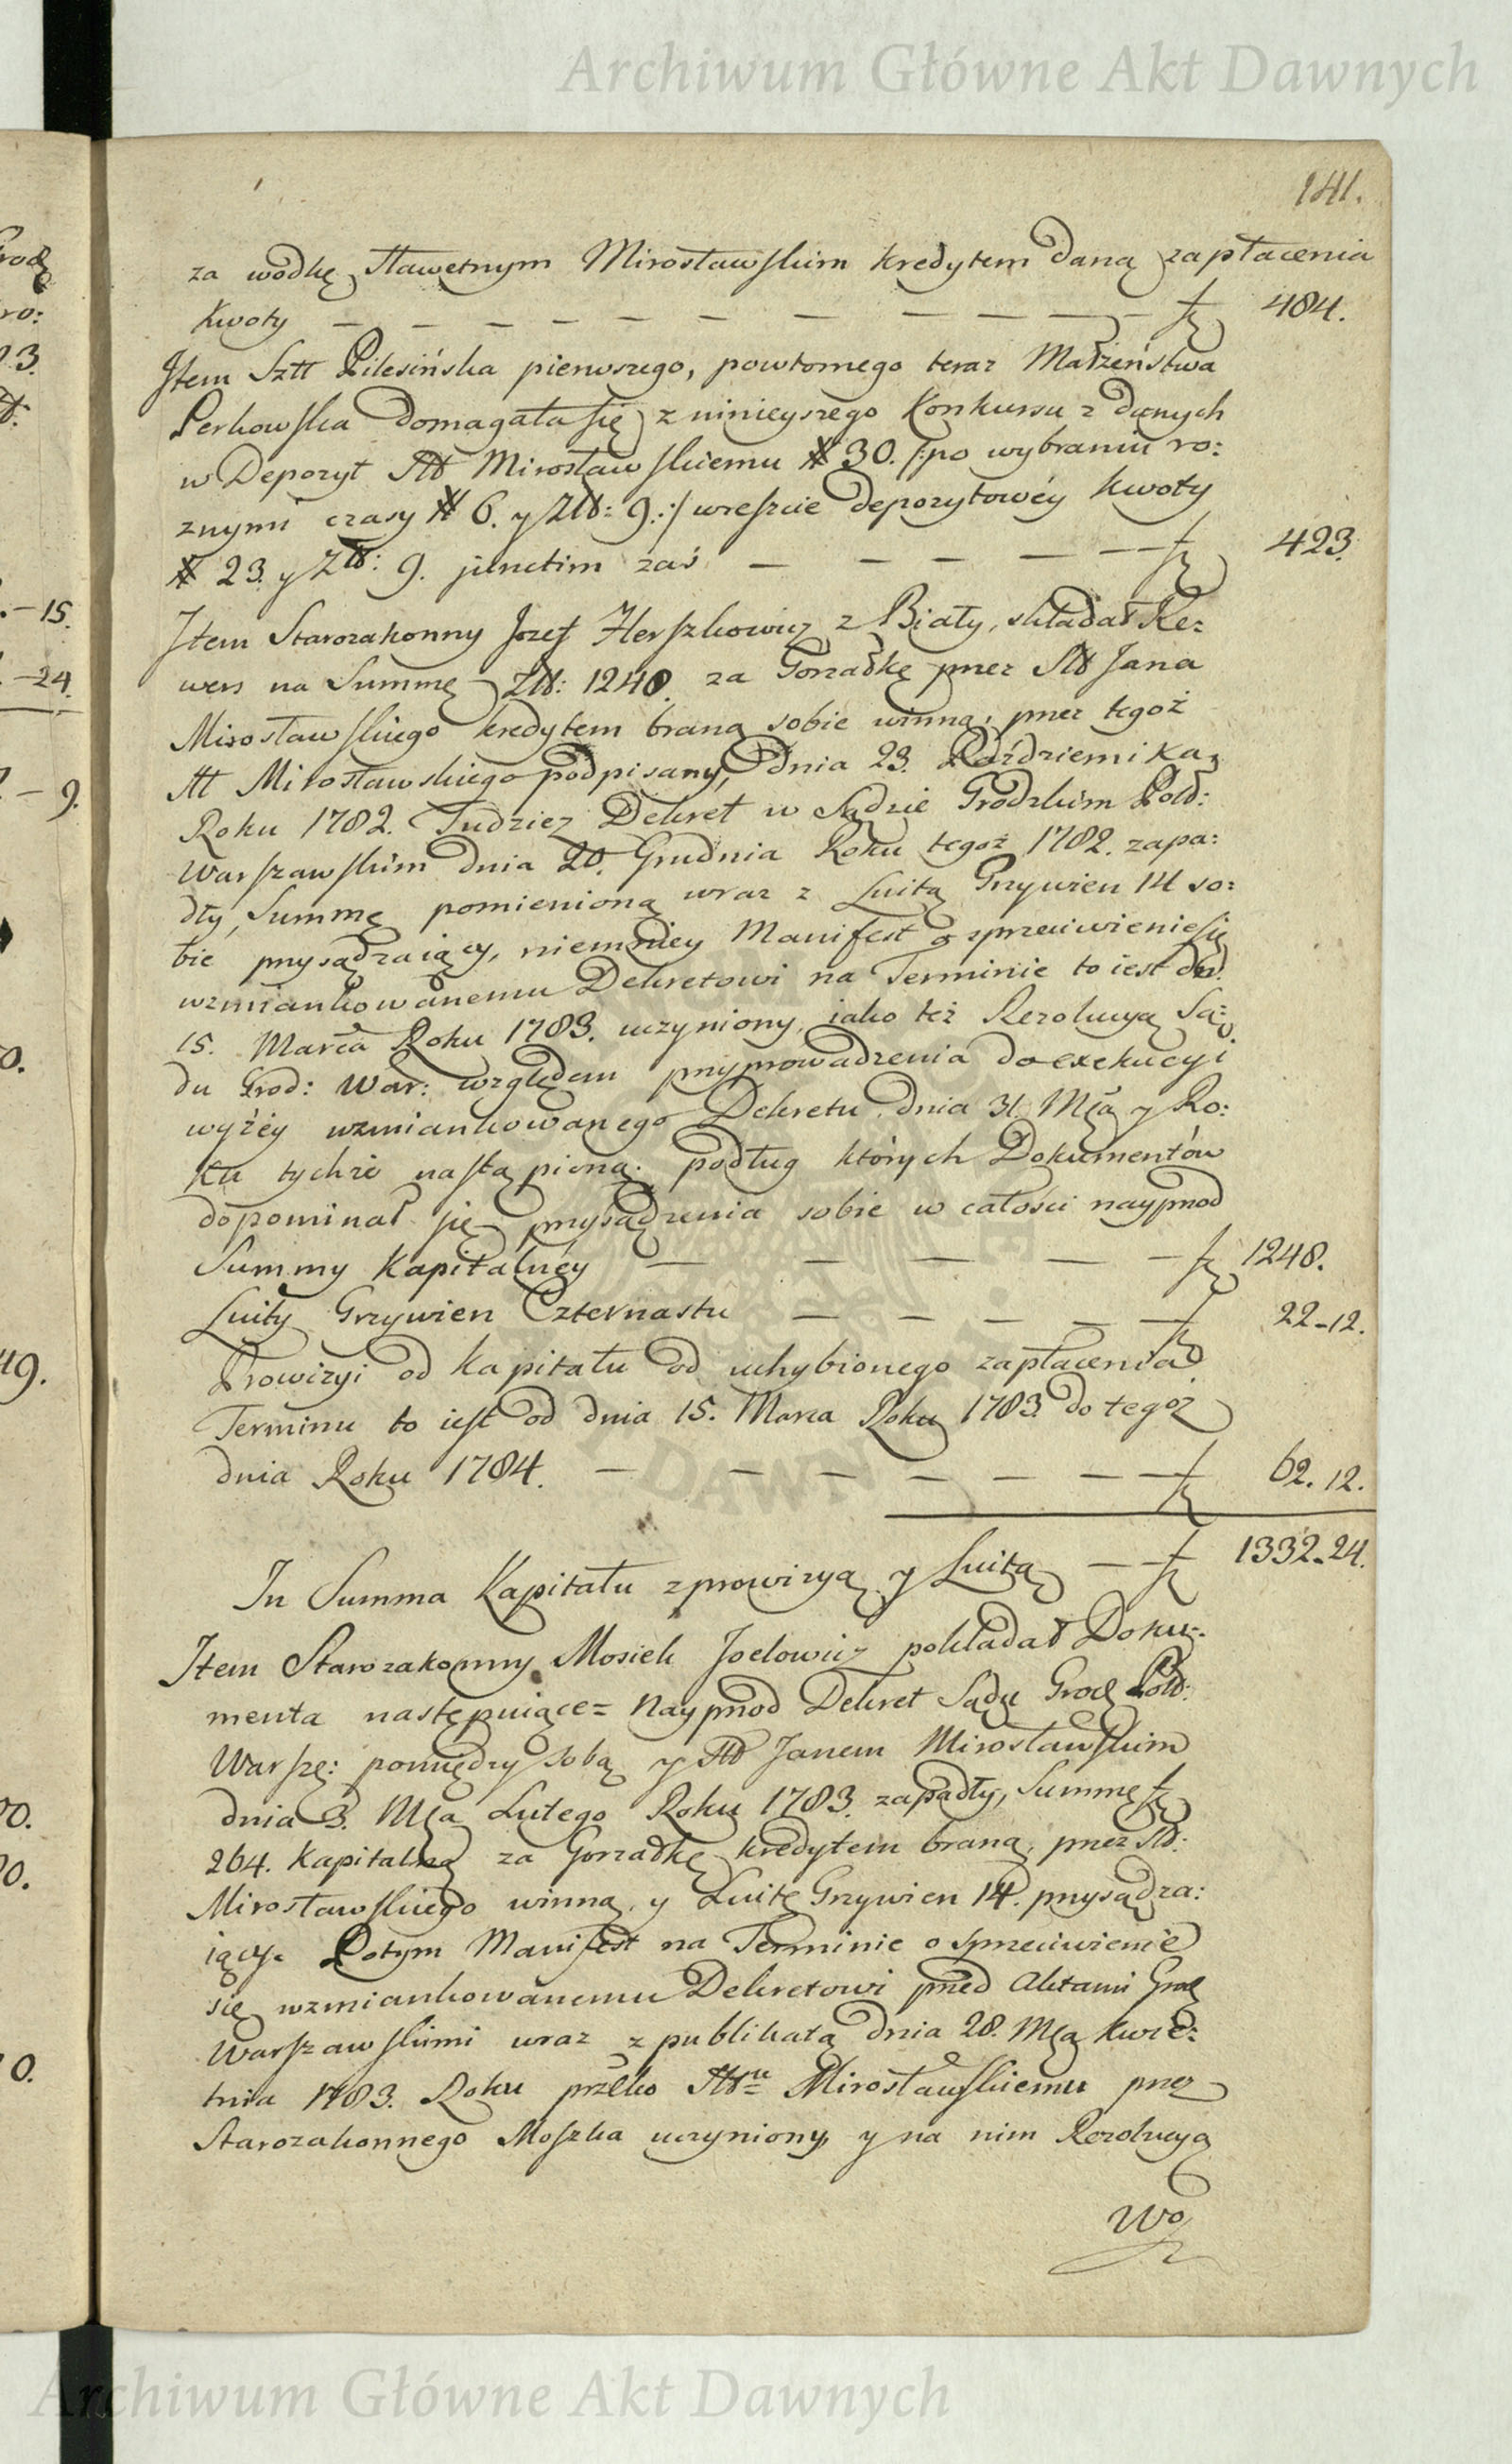 Archiwum Główne Akt Dawnych
141.
za wodkę Sławetnym Mirosławskim kredytem daną zapłacenia
Kwoty — — — — — — — — — — — 484.
Item Sztt Pilesińska pierwszego, powtornego teraz Małżeństwa
Perkowska domagała się z ninieyszego Konkursu z danych
w Depozyt Mirosławskiemu # 30. /: po wybraniu ro:
znymi czasy # 6. y Złł: 9. :/ wreszcie depozytowéy kwoty
# 23. y Złł: 9. junctim zaś — — — — — 423.
Item Starozakonny Jozef Herszkowicz z Biały, składał Re:
wers na Summę Złł: 1248. za Gorzałkę przez Jana
Mirosławskiego kredytem braną sobie winną, przez tegoż
Mirosławskiego podpisany, dnia 23. Października
Roku 1782. Tudziez Dekret w Sądzie Grodzkim
Warszawskim dnia 20. Grudnia Roku tegoż 1782. zapa:
dły, Summę pomienioną wraz z Luitą Grzywien 14 so:
bie przysądzaiący, niemniey Manifest o sprzeciwienie się
wzmiankowanemu Dekretowi na Terminie to iest
15. Marca Roku 1783. uczyniony, iako też Rezolucyą Są:
du Grod: War: względem przyprowadzenia do exekucyi
wyżéy wzmiankowanego Dekretu dnia 31 Mca y Ro:
ku tychże nastąpioną; podług których Dokumentów
dopominał się przysądzenia sobie w całości nayprzod
Summy Kapitalnéy — — — — — 1248.
Luity Grzywien Czternastu — — — — — 22-12.
Prowizyi od Kapitału od uchybionego zapłacenia
Terminu to iest od dnia 15. Marca Roku 1783. do tegoż
dnia Roku 1784. — — — — — — — 62. 12.
In Summa Kapitału z prowizyą y Luitą — 1332-24.
Item Starozakonny Mosiek Joelowicz pokładał Doku:
menta następuiące = Nayprzod Dekret Sądu Grod
Warsz: pomiędzy sobą y Janem Mirosławskim
dnia 3. Mca Lutego Roku 1783. zapadły, Summę
264. Kapitalną za Gorzałkę kredytem braną, przez
Mirosławskiego winną, y Luitę Grzywien 14. przysądza:
iący. Potym Manifest na Terminie o sprzeciwienie
się wzmiankowanemu Dekretowi przed Aktami Grod
Warszawskimi wraz z publikatą dnia 28. Mca Kwie:
tnia 1783. Roku przłko Mirosławskiemu przez
Starozakonnego Moszka uczyniony, y na nim Rezolucyą
Wo
Archiwum Główne Akt Dawnych